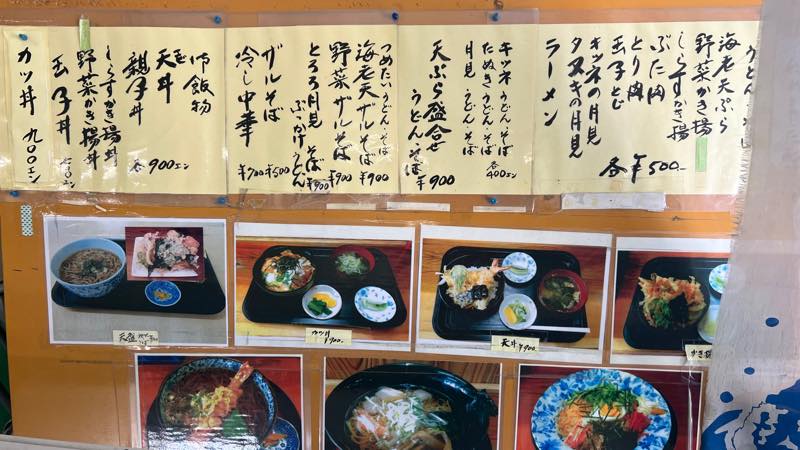 うどん・
海老天ぷら
野菜かき揚
しらすかき揚
ぶた肉
とり肉
玉子とじ
キツネの月見
タヌキの月見
ラーメン
各¥500-
キツネ うどん・そば
たぬき うどん・そば
月見 うどん・そば
各400エン
天ぷら盛合せ
うどん・そば
¥900
つめたいうどん・そば
海老天ザルそば
¥900
野菜ザルそば
¥900
とろろ月見 そば
ぶっかけうどん
¥900
ザルそば
¥500
冷し中華
¥700
御飯物
天丼
親子丼
しらすかき揚丼
野菜かき揚丼
各900エン
玉子丼
カツ丼 九〇〇エン
天盛
カツ丼
¥900-
天丼 ¥900-
かき揚